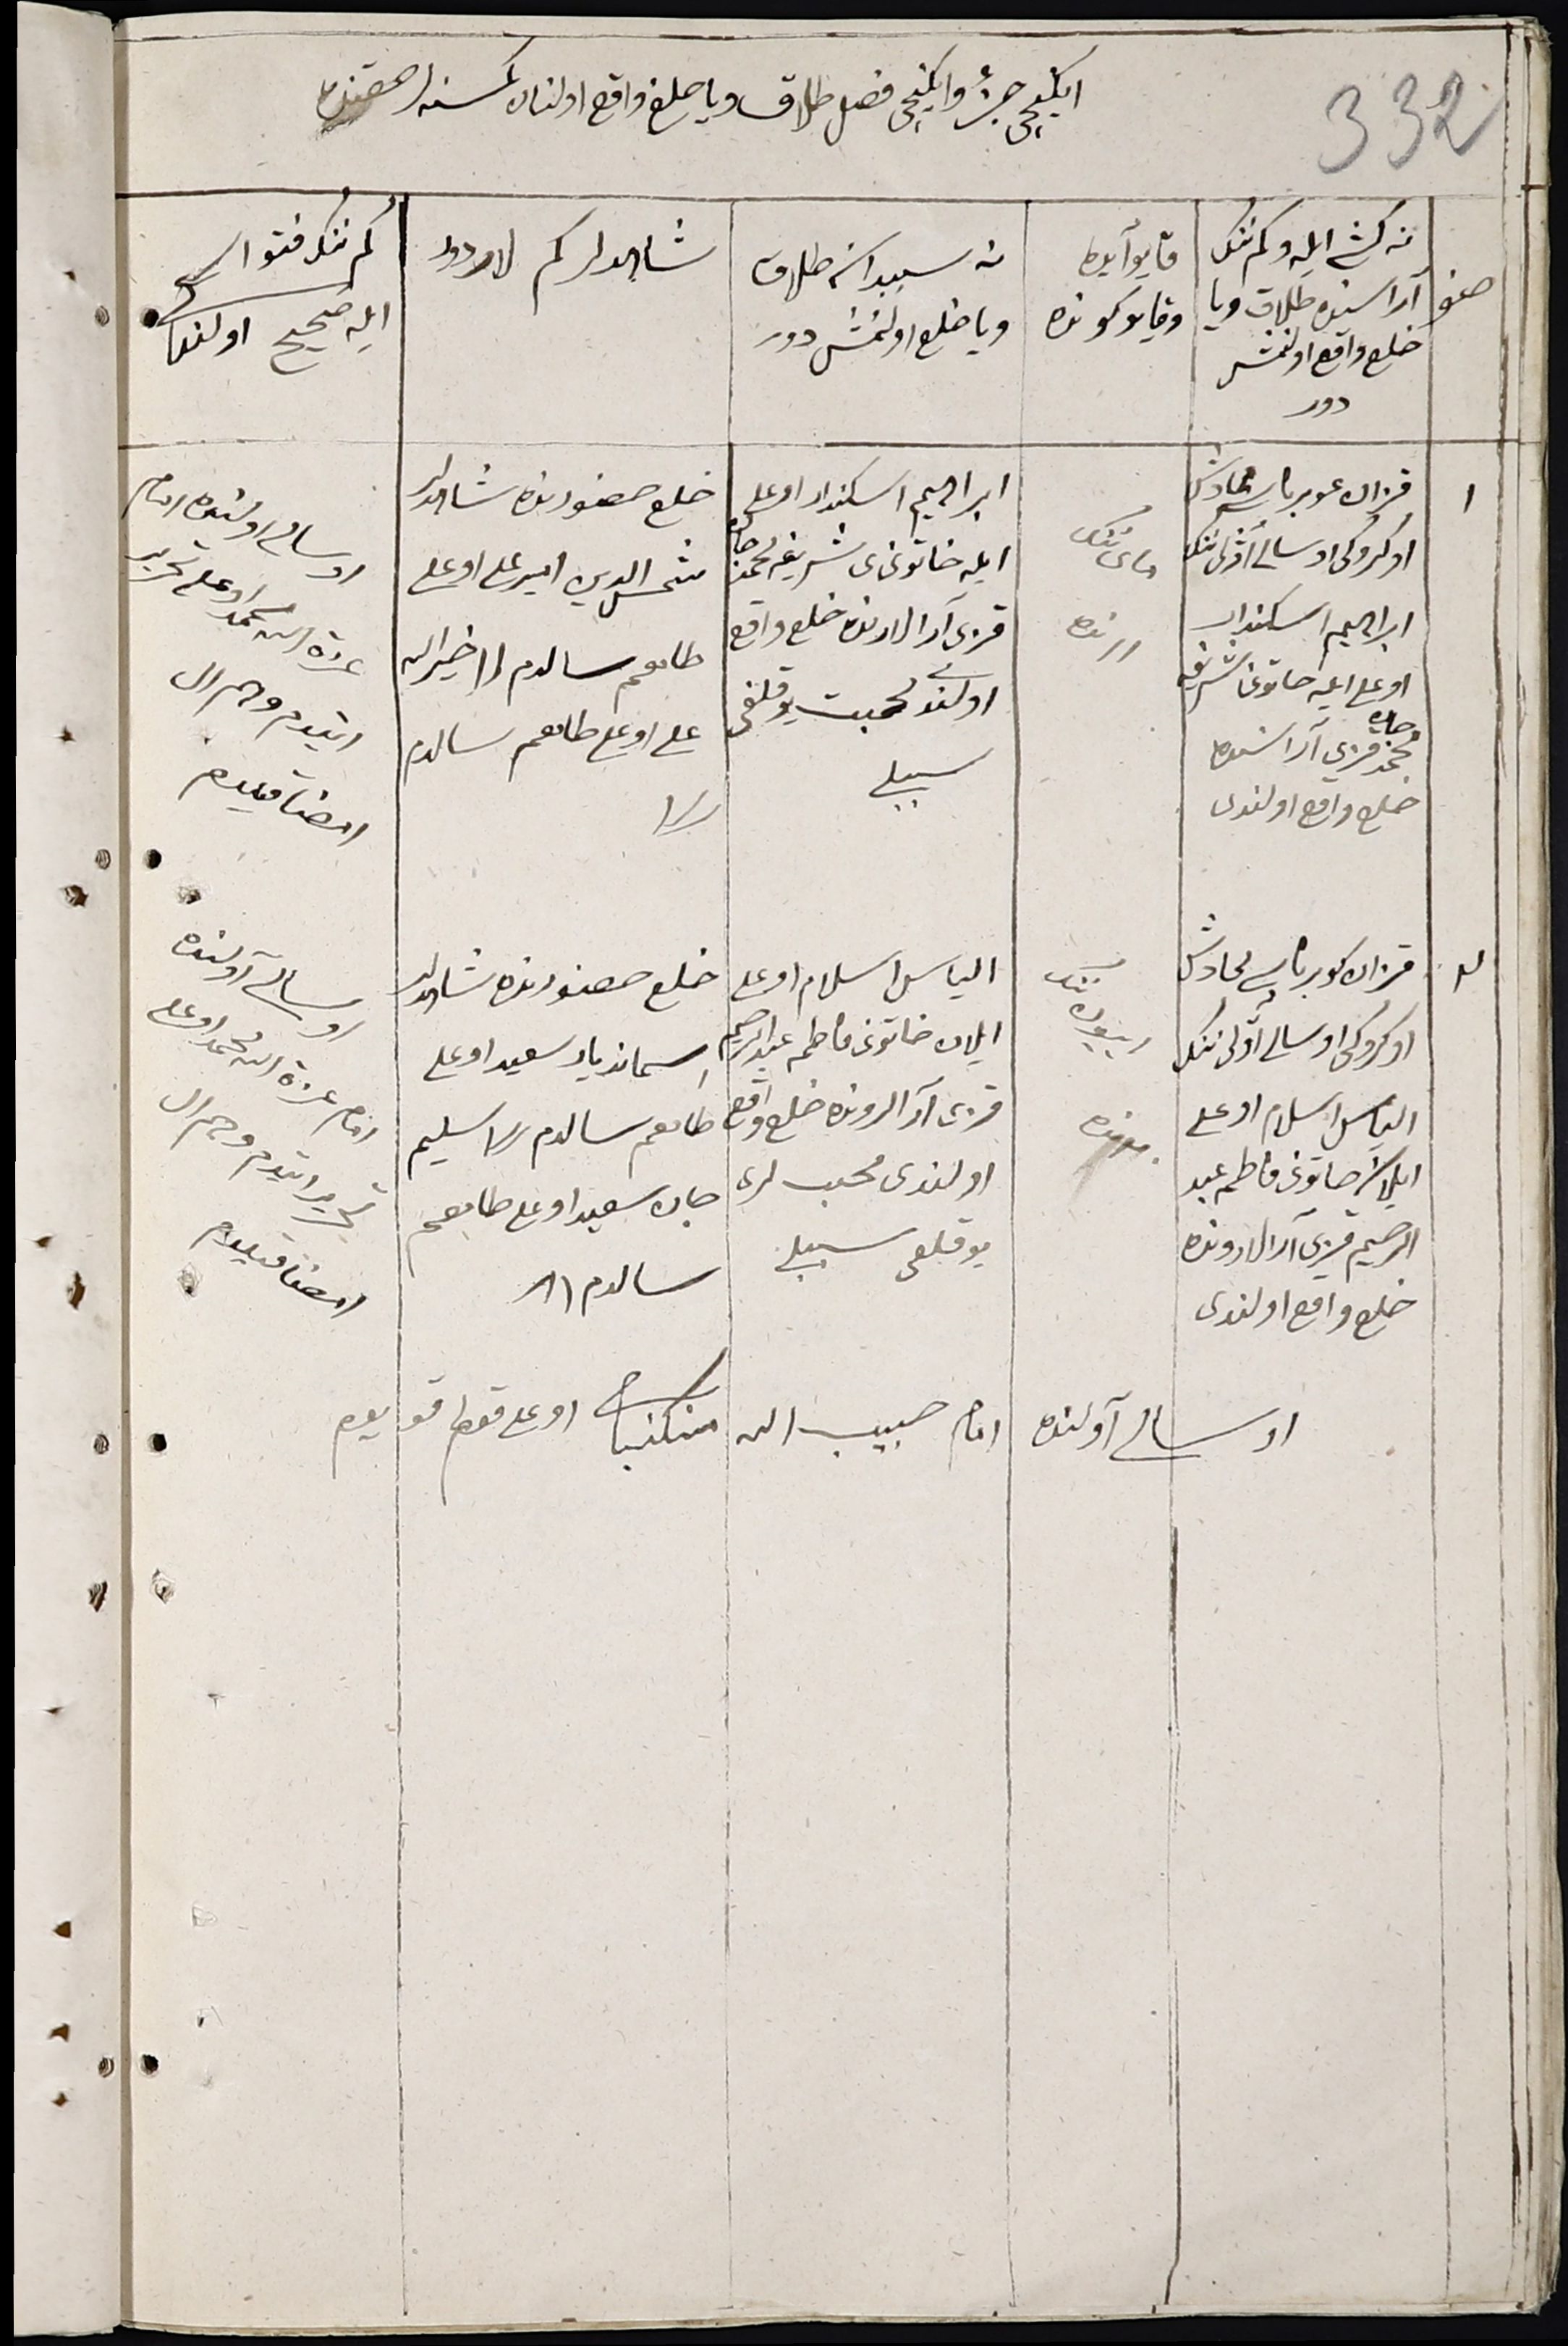 332
ایکنجی جزؤ وایکنجی فصل طلاق ویا خلع واقع اولنان کمسنه لر حقنده
صفو
نه کشی ایله وکم ننک
آراسنده طلاق ویا
خلع واقع اولنمش
دور
قایو آیده
وقایو کونده
نه سببدان طلاق
ویا خلع اولنمش دور
شاهدلر کم لاردور
کم ننک فتواسی
ایله صحیح اولندی
۱
قزان
اوکروکی اوسالی آولی ننک
ابراهیم اسکندار
اوغلی ایله خاتونی شریفه
محمدجان قزی آراسنده
خلع واقع اولندی
مای ننک
ابراهیم اسکندار اوغلی
ایله خاتونی شریفه محمدجان
قزی آرالارنده خلع واقع
اولندی محبت یوقلقی
سببلی
خلع حضورنده شاهدلر
شمس الدین امیرعلی اوغلی
طامغم سالدم خیرالله
علی اوغلی طامغم سالدم
اوسالی اولنده امام
عزة الله محمد اوغلی تحریر
ایتدم وهم
امضا قیلدم
۲
قزان
اوکروکی اوسالی آولی ننک
الیاس اسلام اوغلی
ایلان خاتونی فاطمه عبد
الرحیم قزی آرالارونده
خلع واقع اولندی
الیاس اسلام اوغلی
ایلان خاتونی فاطمه عبدالرحیم
قزی آرالرونده خلع واقع
اولندی محبت لری
یوقلقی سببلی
خلع حضورنده شاهدلر
اسماندیار سعید اوغلی
طامغم سالدم سلیم
جان سعید اوغلی طامغم
سالدم
اوسالی آولنده
امام عزة الله محمد اوغلی
تحریر ایتدم وهم
امضا قیلدم
اوسالی آولنده امام حبیب الله اوغلی قولم قویدم